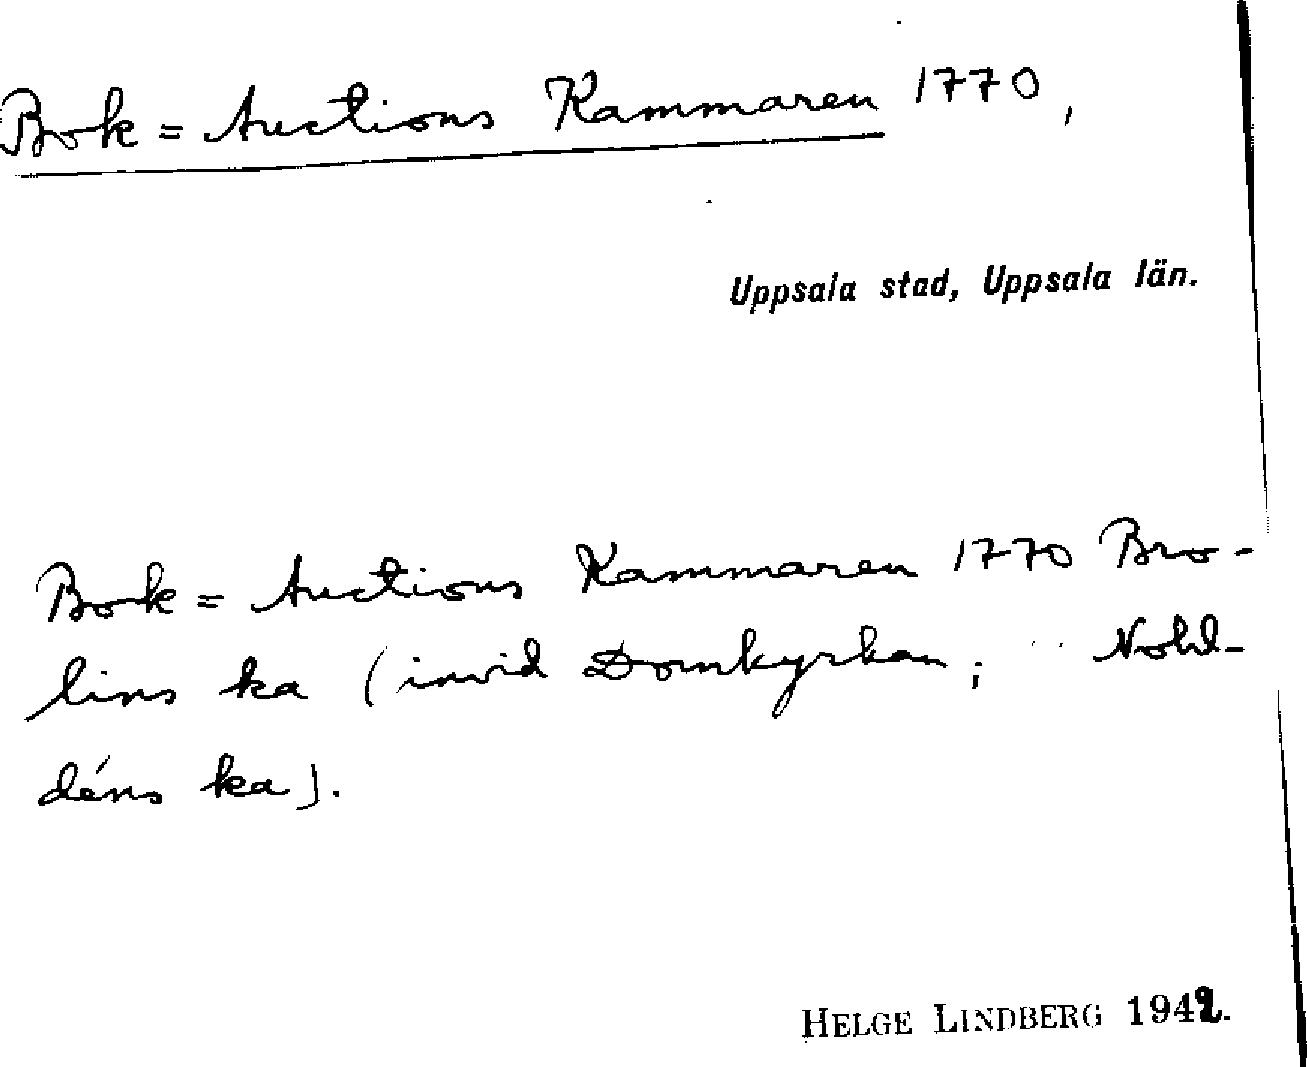 Bok= Auctions Kammaren 1770,
Uppsala stad, Uppsala län.
Bok= Auctions Kammaren 1770 Bro-
lins ka (invid Domkyrkan; Nohl-
déns ka).
HELGE LINDBERG 1942.